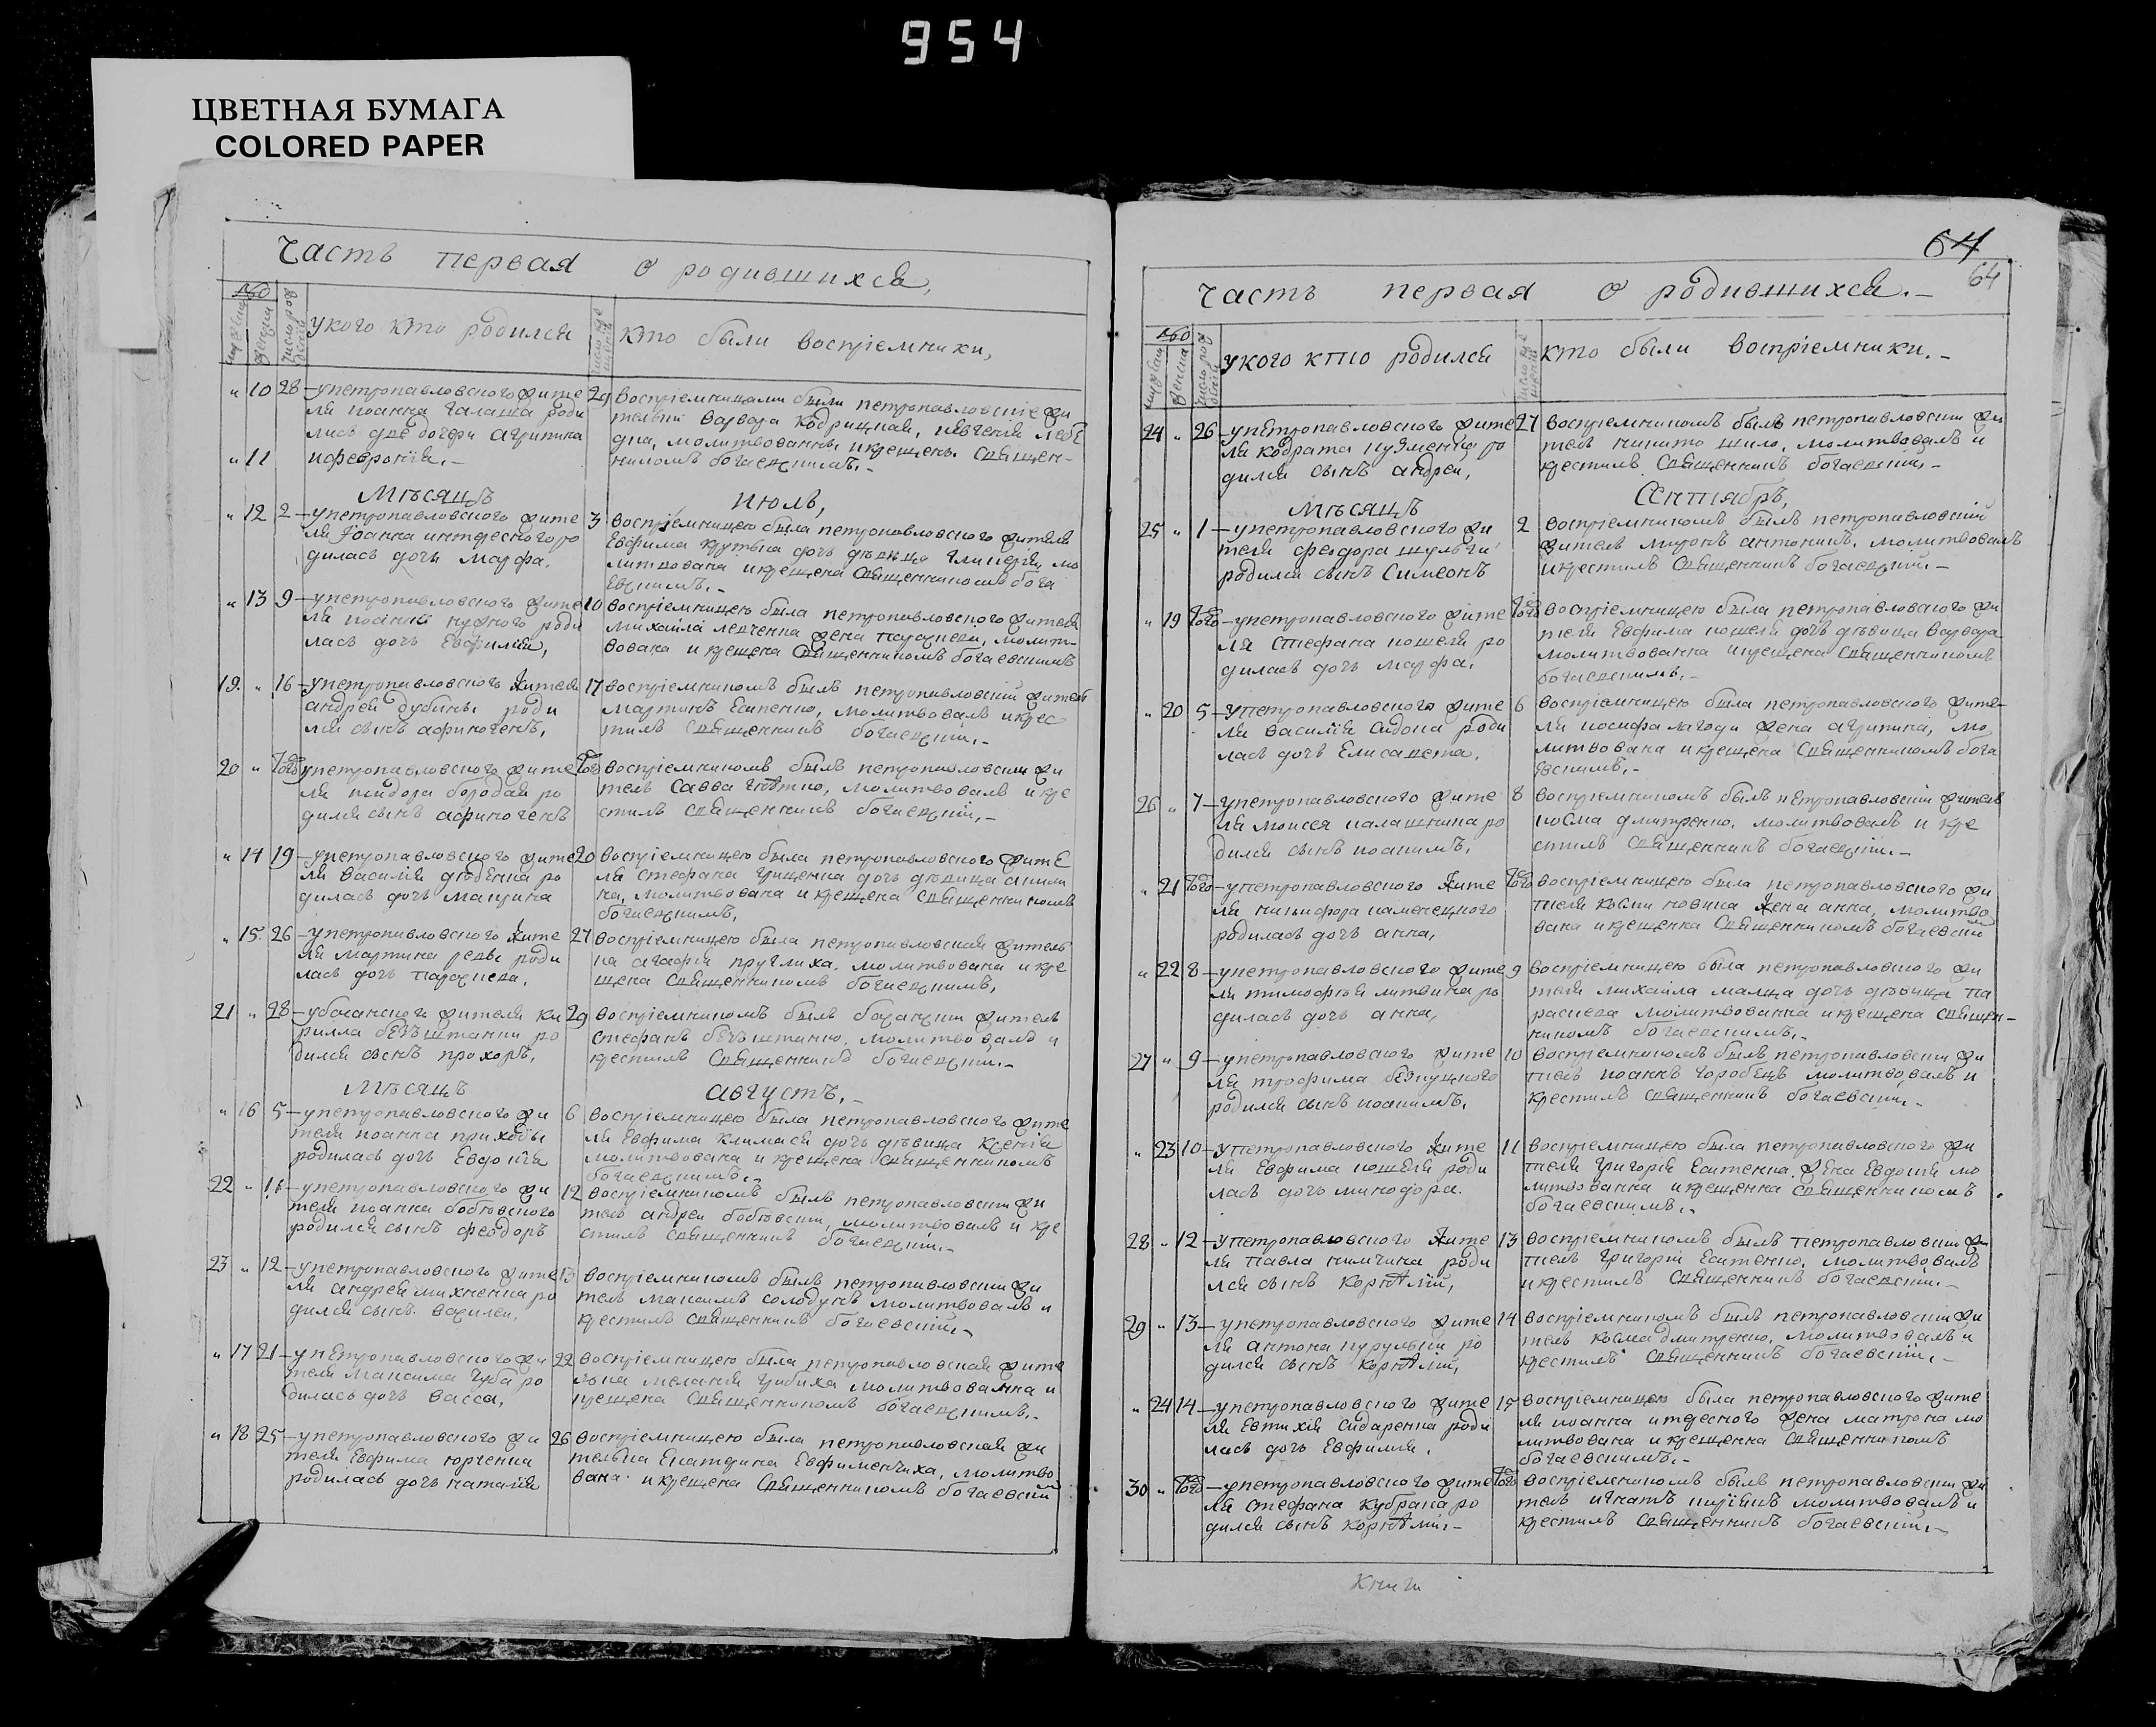 954
ЦВЕТНАЯ БУМАГА
COLORED PAPER
Часть первая о родившихся,
укого кто родился
кто были воспріемники,
" 10 28 упетропавловского жите
ля иоанна галаша роди
лись две дочери агрипина
" 11 ифевронія.
29 воспріемницами были петропавловскіе жи
молитвованны икрещены священ-
никомъ богаевскимъ.
Мѣсяцъ июль,
" 12 2 упетропавловского жите
дилась дочь марфа.
3 воспріемницею была петропавловского жителя
дочь дѣвица гликерія мо
литвована икрещена священникомъ бога
евскимъ.
" 13 9 упетропавловского жите
ля иоанна нужного роди
лась дочь Евфимія,
10 воспріемницею была петропавловского жителя
михайла левченка жена параскева, молит-
вована и крещена священникомъ богаевскимъ
19. " 16 упетропавловского жителя
андрея дубины роди
лся сынъ афиногенъ,
17 воспріемникомъ былъ петропавловскій житель
мартинъ Есипенко, молитвовалъ икрес
тилъ священникъ богаевскій.
20 " того упетропавловского жите
ля сидора бородая ро
дился сынъ афиногенъ
того воспріемникомъ былъ петропавловскии жи
тель Савва молитвовалъ икре
стилъ священникъ богаевскій.
" 14 19 упетропавловского жите
ля василія ро
дилась дочь макрина
20 воспріемницею была петропавловского жите
ля стефана грищенка дочь дѣвица акили
на, молитвована и крещена священникомъ
богаевскимъ,
" 15. 26 упетропавловского жите
ля мартина редьк роди
лась дочь параскева,
27 воспріемницею была петропавловская житель
ка агафія круглиха, молитвована и кре
щена священникомъ богаевскимъ,
21 " 28 жителя ки
рилла безъштанки ро
дился сынъ прохоръ,
29 воспріемникомъ былъ житель
стефанъ безъштанко, молитвовалъ и
крестилъ священникъ богаевскіи.
Мѣсяцъ августъ.
" 16 5 упетропавловского жи
теля иоанна приходы
родилась дочь Евдокія
6 воспріемницею была петропавловского жите
ля Евфима климася дочь дѣвица Ксенія
молитвована и крещена священникомъ
богаевскимъ.
22 " 11 упетропавловского жи
теля иоанна бобовского
родился сынъ феодоръ
12 воспріемникомъ былъ петропавловскіи жи
тель андреи бобовскіи, молитвовалъ и кре
стилъ священникъ богаевскіи.
23 " 12 упетропавловского жите
ля андрея михненка ро
дился сынъ василеи,
13 воспріемникомъ былъ петропавловскіи жи
тель максимъ солодунъ молитвовалъ и
крестилъ священникъ богаевскій.
" 17 21 упетропавловского жи
теля максима губа ро
дилась дочь васса,
22 воспріемницею была петропавловская жите
лька меланія грибиха молитвованна и
крещена священникомъ богаевскимъ.
" 18 25 упетропавловского жи
теля Евфима юрченка
родилась дочь наталія
26 воспріемницею была петропавловская жи
телька Екатерина Евфименчиха, молитво
вана и крещена священникомъ богаевскій
64
64
Часть первая о родившихся.
укого кто родился
кто были воспріемники.
24 " 26 упетропавловского жите
ля кодрата кузменка ро
дился сынъ андреи,
27 воспріемникомъ былъ петропавловскіи жи
тель никита шило, молитвовалъ и
крестилъ священникъ богаевскіи.
Мѣсяцъ Сентябрь,
25 " 1 упетропавловского жи
теля феодора шульги
родился сынъ Симеонъ
2 воспріемникомъ былъ петропавловскій
житель миронъ антоникъ. молитвовалъ
икрестилъ священникъ богаевскій.
" 19 того упетропавловского жите
ля стефана кошеля ро
дилась дочь марфа,
того воспріемницею была петропавловского жи
теля Евфима кошеля дочь дѣвица варвара
молитвованна икрещена священникомъ
богаевскимъ.
" 20 5 упетропавловского жите
ля василія Сидона роди
лась дочь Елисавета.
6 воспріемницею была петропавловского жите-
ля иосифа лагоди жена агрипина, мо
литвована икрещена священникомъ бога
евскимъ.
26 " 7 упетропавловского жите
ля моисея калашника ро
дился сынъ иоакимъ,
8 воспріемникомъ былъ петропавловскій житель
косма дмитренко, молитвовалъ и кре
стилъ священникъ богаевскій.
" 21 того упетропавловского жите
ля никифора каменецкого
родилась дочь анна,
того воспріемницею была петропавловского жи
теля косми новика жена анна, молитво
вана икрещенна священникомъ богаевскій
" 22 8 упетропавловского жите
ля тимофѣя литвина ро
дилась дочь анна,
9 воспріемницею была петропавловского жи
теля михайла малка дочь дѣвица па
раскева молитвованна икрещена священ-
никомъ богаевскимъ.
27 " 9 упетропавловского жите
ля трофима безкущного
родился сынъ иоакимъ,
10 воспріемникомъ былъ петропавловскіи жи
тель иоаннъ горобецъ молитвовалъ и
крестилъ священникъ богаевскіи.
" 23 10 упетропавловского жите
ля Евфима кошеля роди
лась дочь минодора.
11 воспріемницею была петропавловского жи
теля григорія Есипенка жена Евдокія мо
литвованна икрещенна священникомъ
богаевскимъ.
28 " 12 упетропавловского жите
ля павла кимчика роди
лся сынъ корнилій,
13 воспріемникомъ былъ петропавловскіи жи
тель григоріи Есипенко, молитвовалъ
икрестилъ священникъ богаевскіи.
29 " 13 упетропавловского жите
ля антона ро
дился сынъ корнилій,
14 воспріемникомъ былъ петропавловскіи жи
тель косма дмитренко, молитвовалъ и
крестилъ священникъ богаевскій.
" 24 14 упетропавловского жите
ля Евтихія Сидаренка роди
лась дочь Евфимия.
15 воспріемницею была петропавловского жите
ля иоанна жена матрона мо
литвована икрещенна священникомъ
богаевскимъ.
30 " того упетропавловского жите
ля стефана кубрака ро
дился сынъ корнилій.
того воспріемникомъ былъ петропавловскіи жи
тель игнатъ молитвовалъ и
крестилъ священникъ богаевскій.
книги